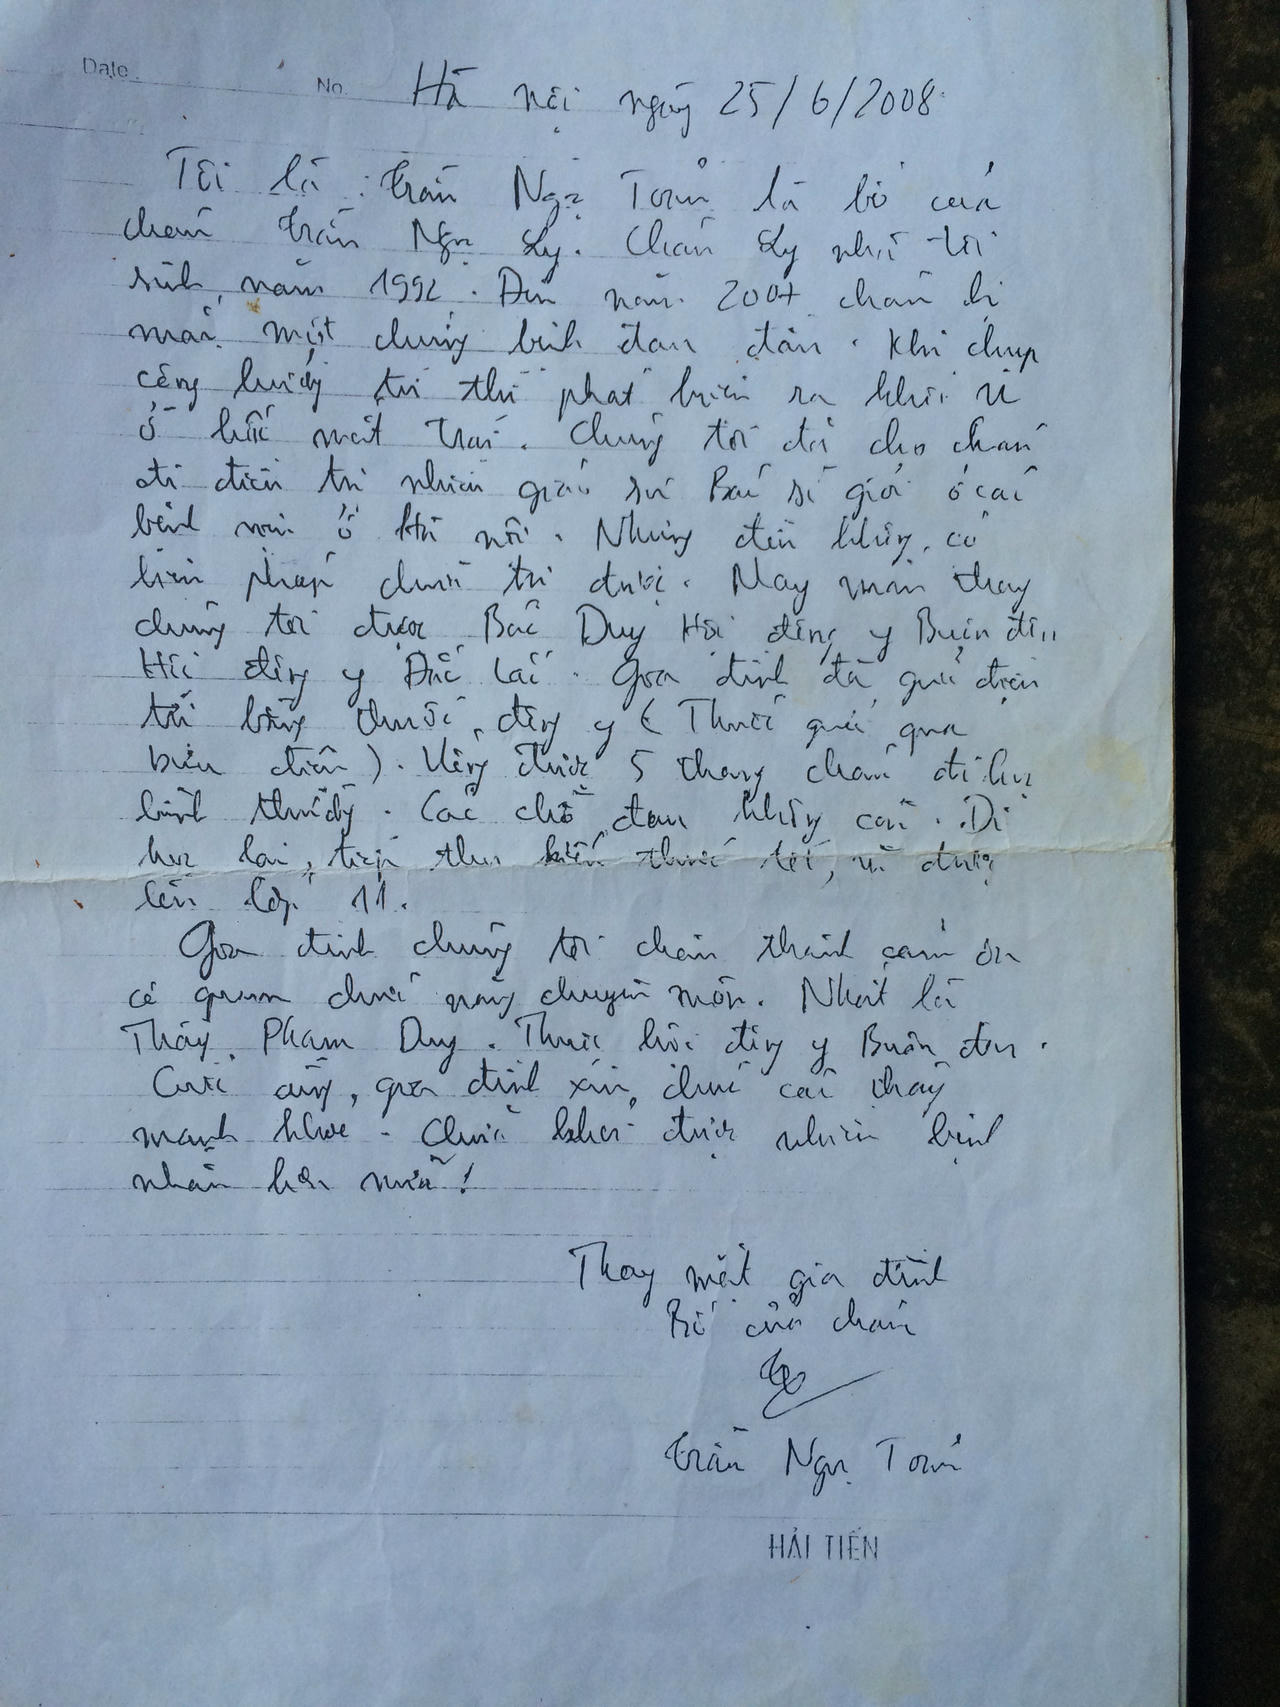 Date No. Hà nội ngày 25/6/2008
Tôi là : Trần Ngọc là bố của
cháu Trần Ngọc Ly. Cháu Ly nhà tôi
sinh năm 1992. Đến năm 2007 cháu bị
mắc một chứng bệnh đau đầu. Khi chụp
cộng hưởng từ thì phát hiện ra khối u
ở hốc mắt trái. Chúng tôi đã cho cháu
đi điều trị nhiều giáo sư Bác sĩ giỏi ở các
bệnh viện ở Hà nội. Nhưng đều không có
biện pháp chữa trị được. May mắn thay
chúng tôi được Bác Duy Hội đông y Buôn đôn
Hội đông y Đắc Lắc. Gia đình đã điều
trị bằng thuốc đông y ( Thuốc gửi qua
bưu điện ). Uống được 5 tháng cháu đi học
bình thường. Các chỗ đau không còn. Đi
học lại, tiếp thu kiến thức tốt, và được
lên lớp 11.
Gia đình chúng tôi chân thành cám ơn
cơ quan chức năng chuyên môn. Nhất là
Thầy Phạm Duy. Thuộc hội đông y Buôn đôn.
Cuối cùng, gia đình xin chúc các thầy
mạnh khoẻ. Chữa khỏi được nhiều bệnh
nhân hơn nữa!
Thay mặt gia đình
Bố của cháu
Trần Ngọc
HẢI TIẾN